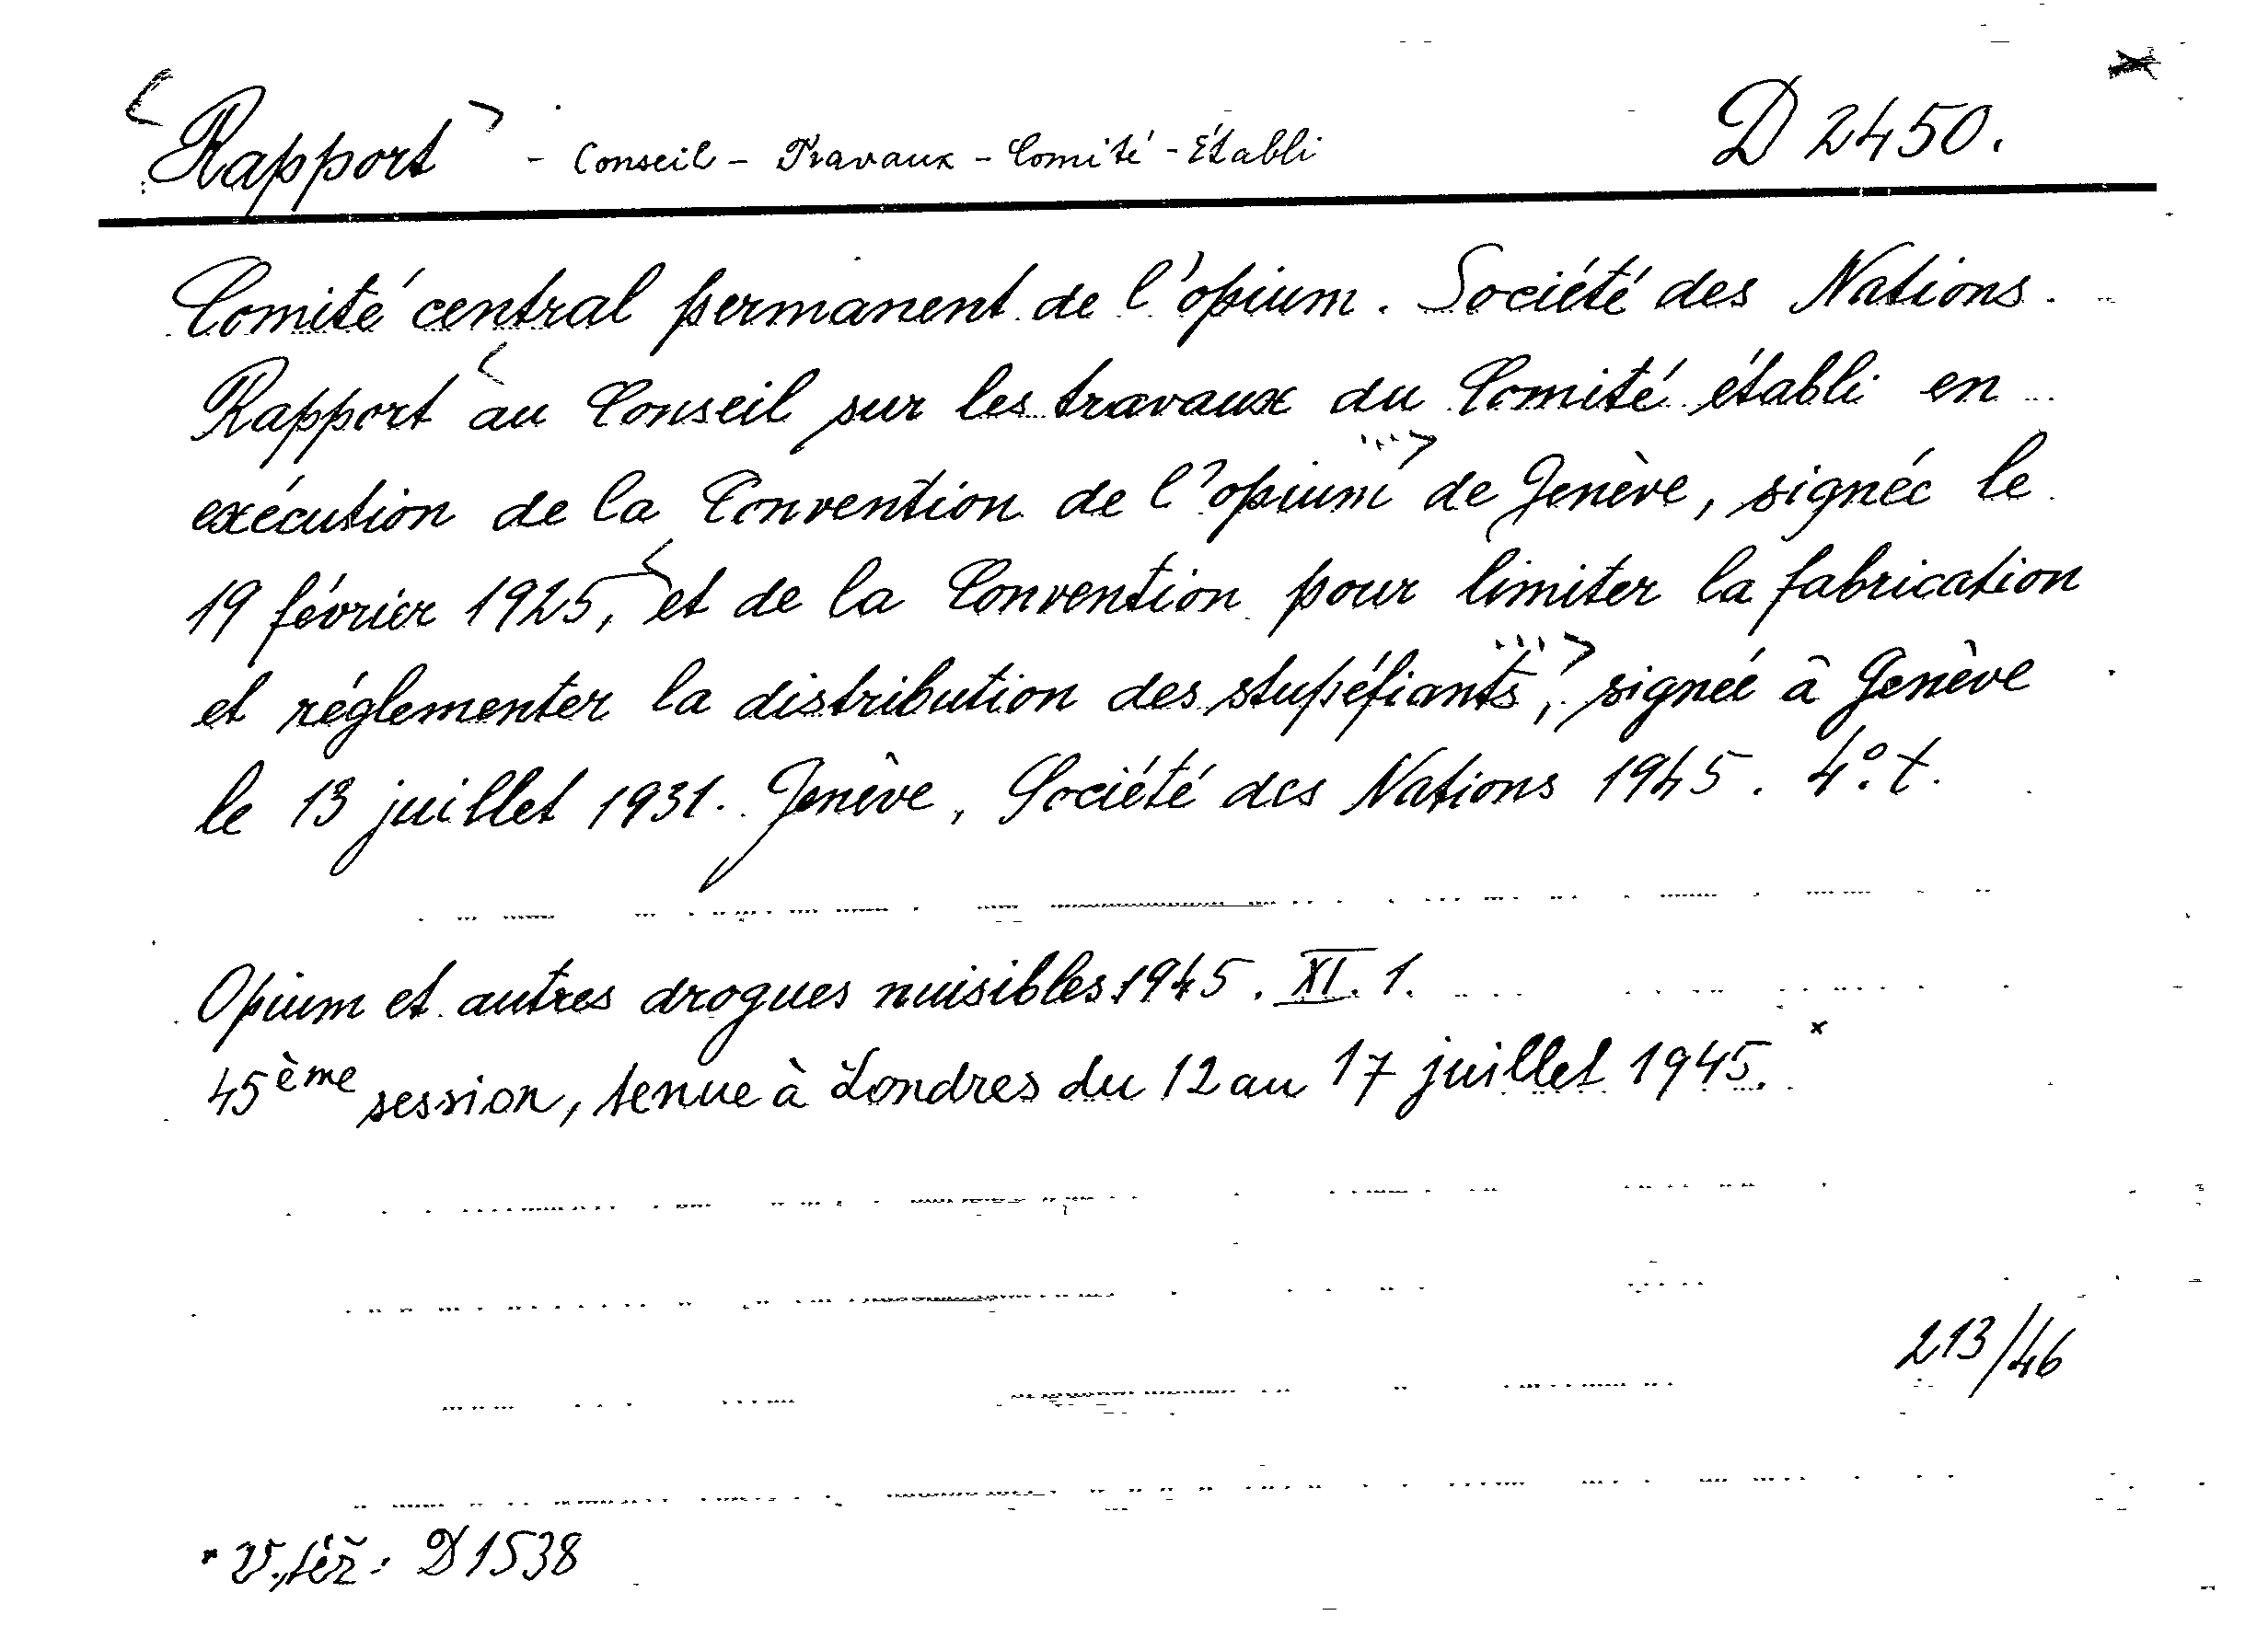 <Rapport> - Conseil - Travaux - Comité - Établi D 2450.
Comité central permanent de l'opium. Société des Nations.
Rapport <au Conseil sur les travaux du Comité établi en
exécution de la Convention de l'opium ...> de Genève, signée le
19 février 1925, <et de la Convention pour limiter la fabrication
et réglementer la distribution des stupéfiants, ...> signée à Genève
le 13 juillet 1931. Genève, Société des Nations 1945. 4°. t.
Opium et autres drogues nuisibles. 1945. XI. 1.
45ème session, tenue à Londres du 12 au 17 juillet 1945. *
213/46
* V. též: D 1538